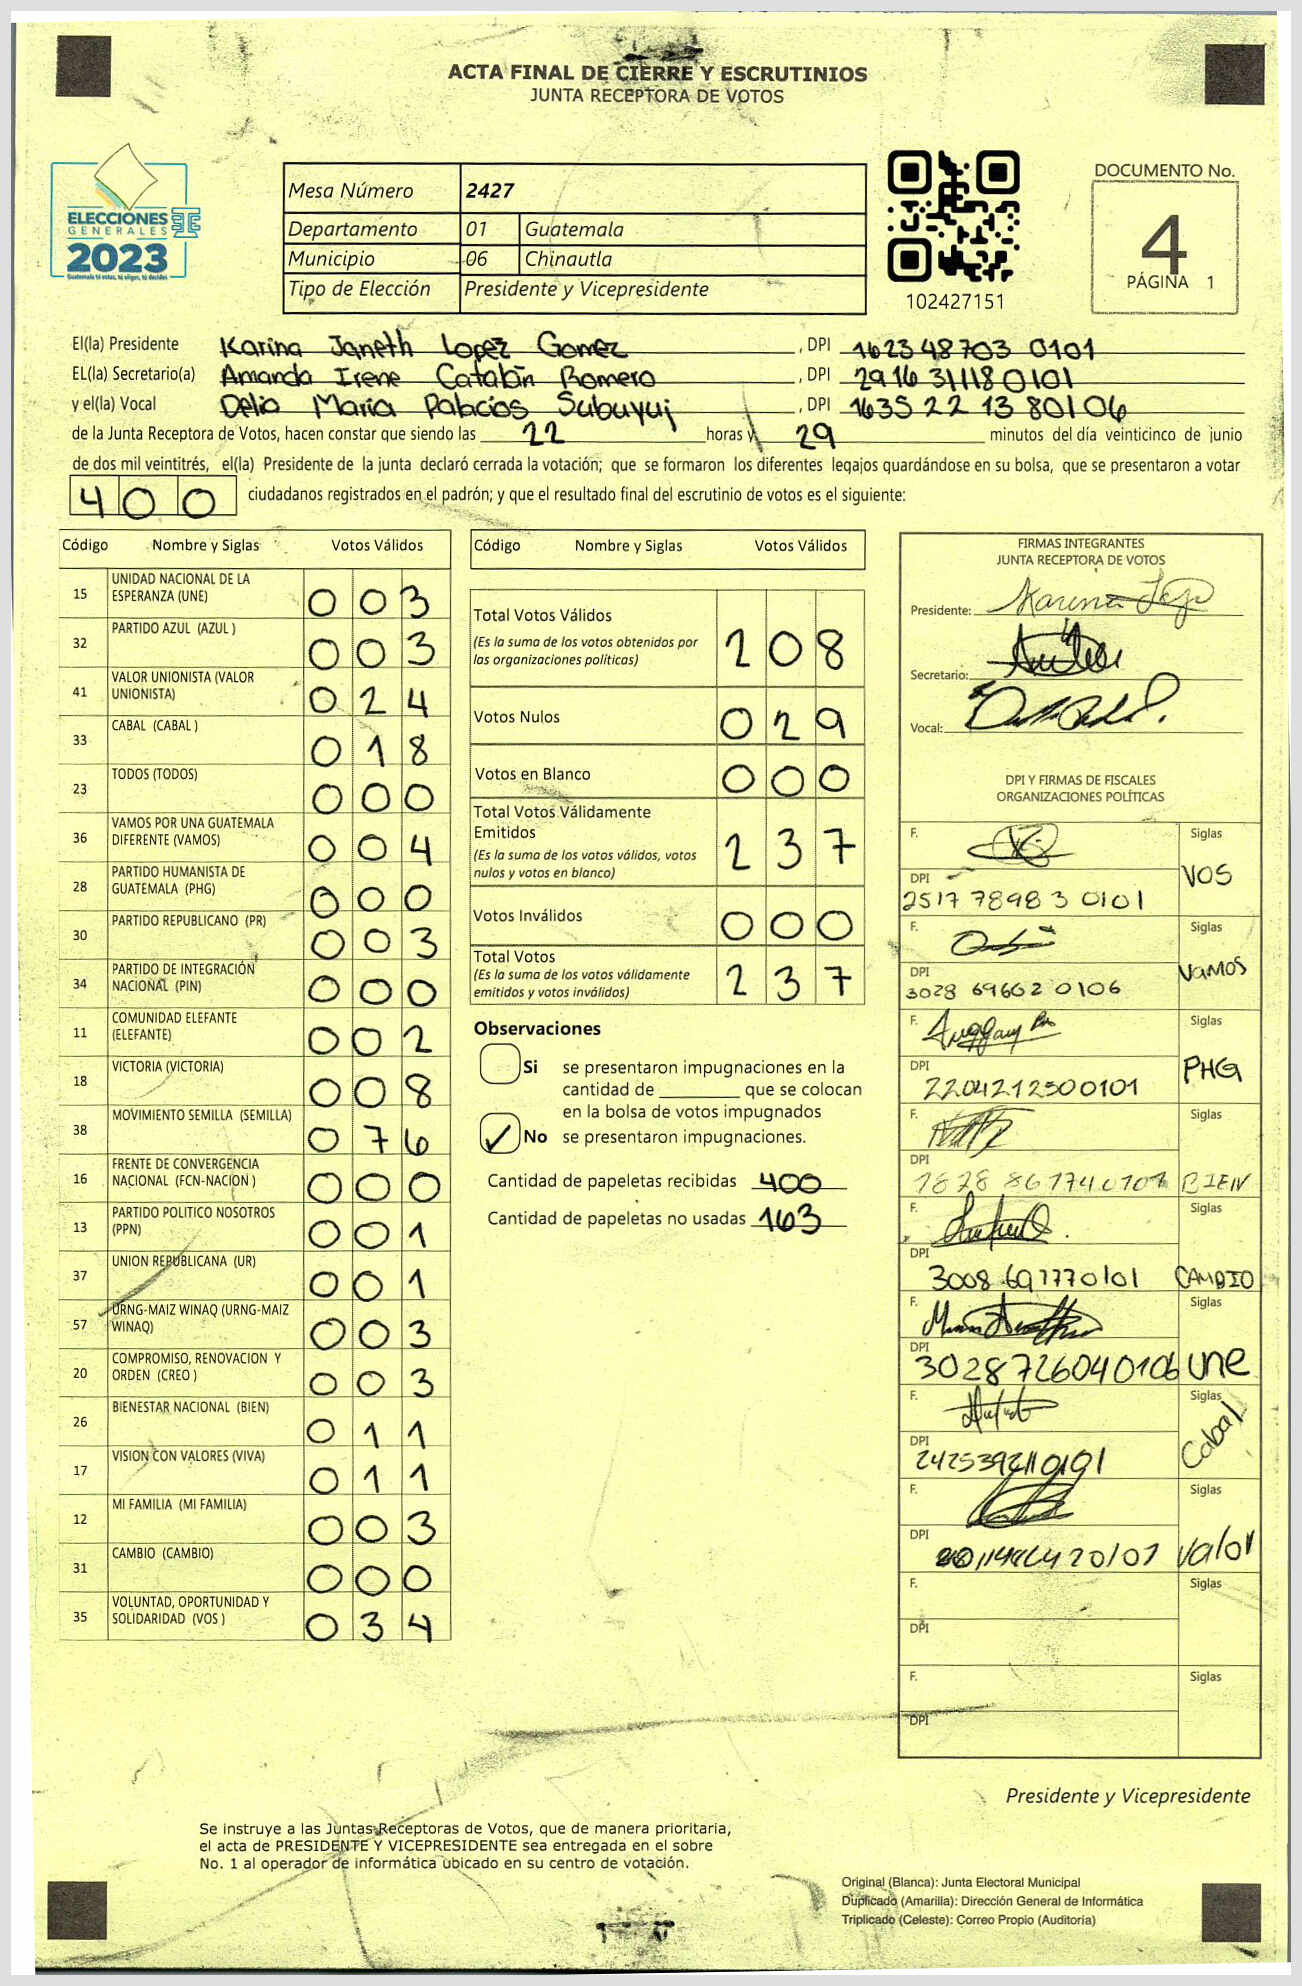 ACTA FINAL DE CIERRE Y ESCRUTINIOS
JUNTA RECEPTORA DE VOTOS
ELECCIONES
GENERALES
2023
Guatemala tú votas, tú eliges, tú decides
Mesa Número 2427
Departamento 01 Guatemala
Municipio 06 Chinautla
Tipo de Elección Presidente y Vicepresidente
102427151
DOCUMENTO No.
4
PÁGINA 1
El(la) Presidente Karina Janeth Lopez Gomez, DPI 1623 48703 0101
EL(la) Secretario(a) Amanda Irene Catalán Romero, DPI 2916 31118 0101
y el(la) Vocal Delia Maria Palacios Subuyuj, DPI 1635 22 13 80106
de la Junta Receptora de Votos, hacen constar que siendo las 22 horas y 29 minutos del día veinticinco de junio
de dos mil veintitrés, el(la) Presidente de la junta declaró cerrada la votación; que se formaron los diferentes legajos guardándose en su bolsa, que se presentaron a votar
400 ciudadanos registrados en el padrón; y que el resultado final del escrutinio de votos es el siguiente:
Código Nombre y Siglas Votos Válidos
15 UNIDAD NACIONAL DE LA ESPERANZA (UNE) 003
32 PARTIDO AZUL (AZUL ) 003
41 VALOR UNIONISTA (VALOR UNIONISTA) 024
33 CABAL (CABAL ) 018
23 TODOS (TODOS) 000
36 VAMOS POR UNA GUATEMALA DIFERENTE (VAMOS) 004
28 PARTIDO HUMANISTA DE GUATEMALA (PHG) 000
30 PARTIDO REPUBLICANO (PR) 003
34 PARTIDO DE INTEGRACIÓN NACIONAL (PIN) 000
11 COMUNIDAD ELEFANTE (ELEFANTE) 002
18 VICTORIA (VICTORIA) 008
38 MOVIMIENTO SEMILLA (SEMILLA) 076
16 FRENTE DE CONVERGENCIA NACIONAL (FCN-NACION ) 000
13 PARTIDO POLITICO NOSOTROS (PPN) 001
37 UNION REPUBLICANA (UR) 001
57 URNG-MAIZ WINAQ (URNG-MAIZ WINAQ) 003
20 COMPROMISO, RENOVACION Y ORDEN (CREO ) 003
26 BIENESTAR NACIONAL (BIEN) 011
17 VISION CON VALORES (VIVA) 011
12 MI FAMILIA (MI FAMILIA) 003
31 CAMBIO (CAMBIO) 000
35 VOLUNTAD, OPORTUNIDAD Y SOLIDARIDAD (VOS ) 034
Código Nombre y Siglas Votos Válidos
Total Votos Válidos
(Es la suma de los votos obtenidos por
las organizaciones políticas) 208
Votos Nulos 029
Votos en Blanco 000
Total Votos Válidamente
Emitidos
(Es la suma de los votos válidos, votos
nulos y votos en blanco) 237
Votos Inválidos 000
Total Votos
(Es la suma de los votos válidamente
emitidos y votos inválidos) 237
Observaciones
Si se presentaron impugnaciones en la
cantidad de ________ que se colocan
en la bolsa de votos impugnados
✓ No se presentaron impugnaciones.
Cantidad de papeletas recibidas 400
Cantidad de papeletas no usadas 163
FIRMAS INTEGRANTES
JUNTA RECEPTORA DE VOTOS
Presidente:
Secretario:
Vocal:
DPI Y FIRMAS DE FISCALES
ORGANIZACIONES POLÍTICAS
F. Siglas
DPI VOS
2517 78983 0101
F. Siglas
DPI VAMOS
3028 69662 0106
F. Siglas
DPI PHG
2204212500101
F.
DPI
1828 861740101 BIEN
F. Siglas
DPI
3008 697770101 CAMBIO
F. Siglas
DPI
3028726040106 une
F. Siglas
DPI Cabal
F. Siglas
DPI
Valor
F. Siglas
DPI
F. Siglas
DPI
Presidente y Vicepresidente
Se instruye a las Juntas Receptoras de Votos, que de manera prioritaria,
el acta de PRESIDENTE Y VICEPRESIDENTE sea entregada en el sobre
No. 1 al operador de informática ubicado en su centro de votación.
Original (Blanca): Junta Electoral Municipal
Duplicado (Amarilla): Dirección General de Informática
Triplicado (Celeste): Correo Propio (Auditoría)